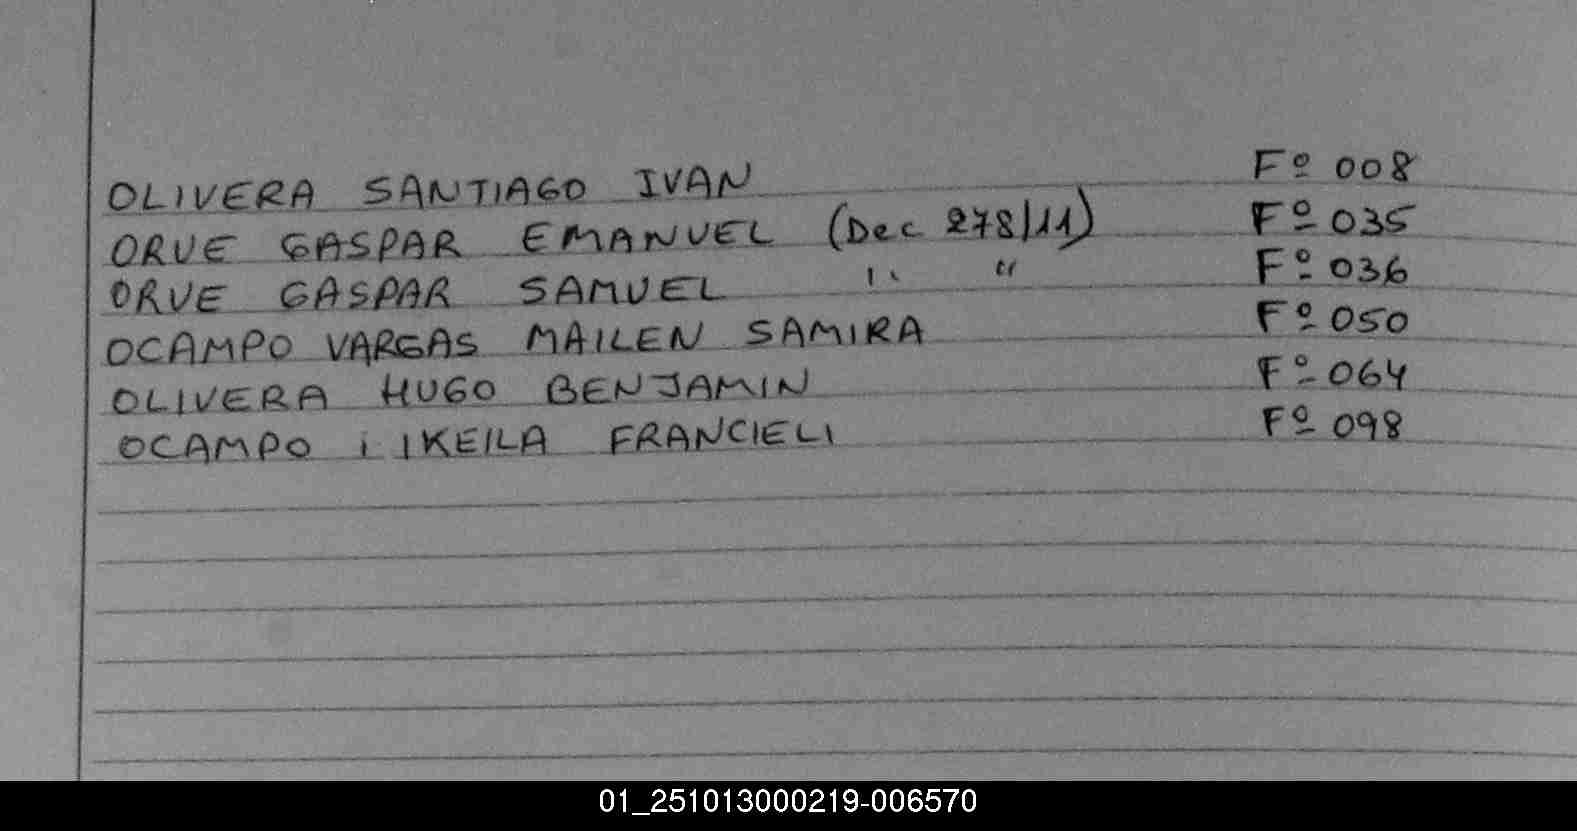 OLIVERA SANTIAGO IVAN Fº 008
ORUE GASPAR EMANUEL (Dec 278/11) Fº 035
ORUE GASPAR SAMUEL " " Fº 036
OCAMPO VARGAS MAILEN SAMIRA Fº 050
OLIVERA HUGO BENJAMIN Fº 064
OCAMPO KEILA FRANCIELI Fº 098
01_251013000219-006570